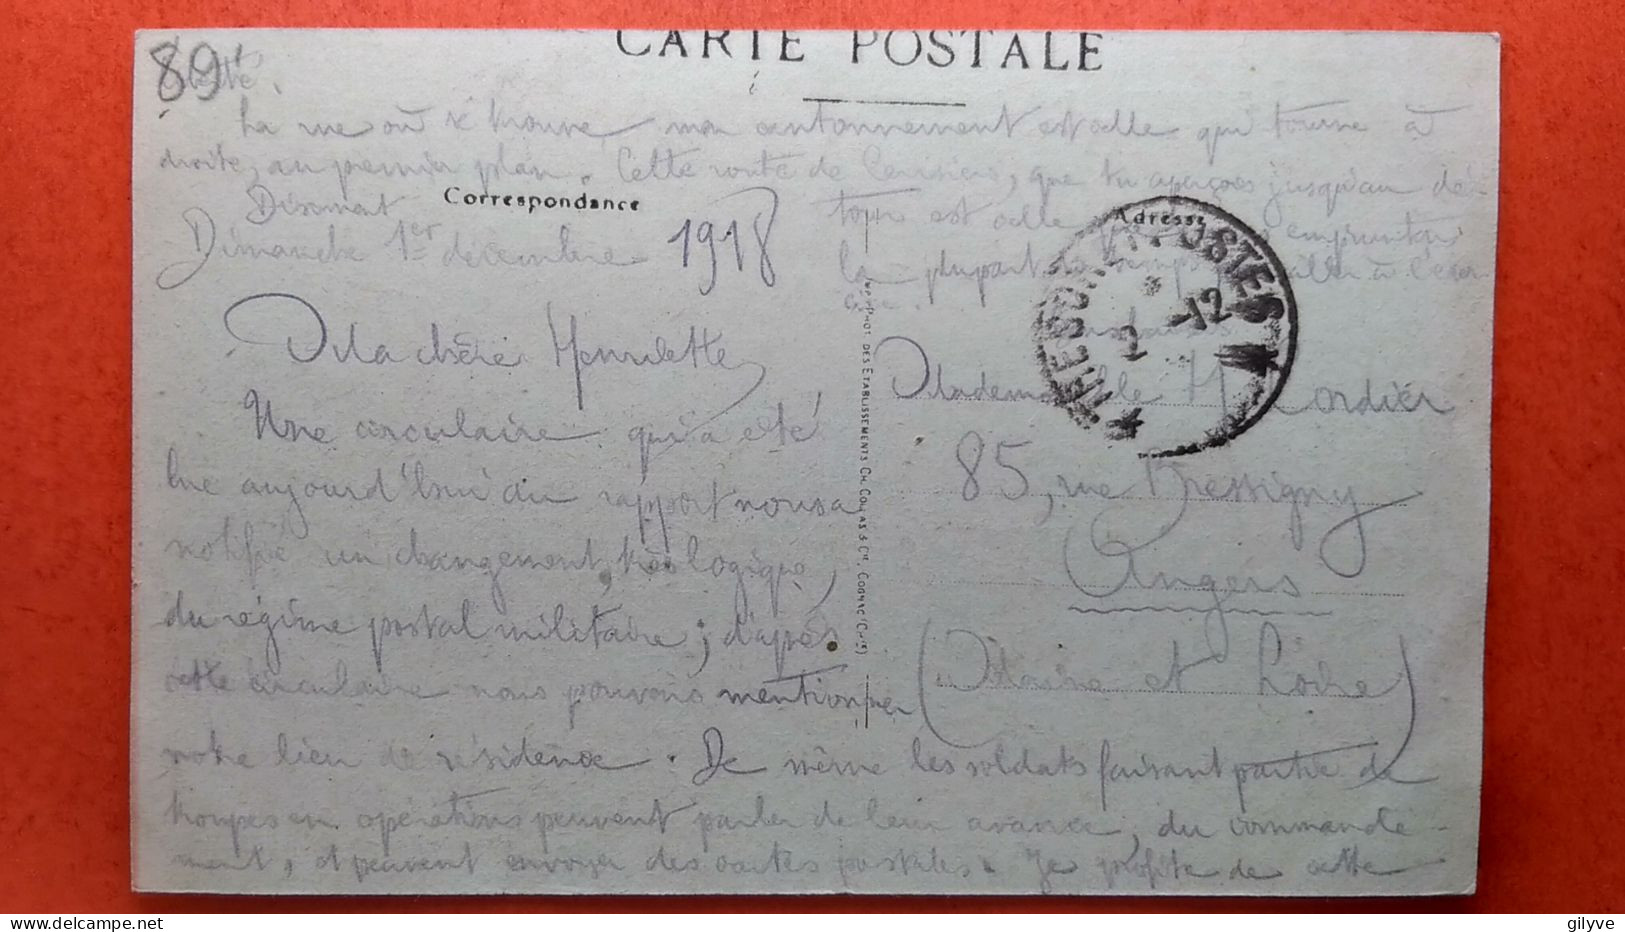 89
CARTE POSTALE
La rue où se trouve mon cantonnement est celle qui tourne à
droite, au premier plan. Cette route de que tu aperçois jusqu'au dé-
Correspondance
Adresse
tour est celle empruntée
Disemont
Dimanche 1er décembre 1918
la plupart du temps aller à l'exer-
cice.
TRESOR ET POSTES
2 -12
Ma chère Henriette,
Mademoiselle H Cordier
Une circulaire qui a été
85, rue Bressigny
lue aujourd'hui au rapport nous a
Angers
notifié un changement, très logique,
du régime postal militaire ; d'après
(Maine et Loire)
cette circulaire nous pouvons mentionner
notre lieu de résidence. De même les soldats faisant partie de
troupes en opérations peuvent parler de leur avance, du commande-
ment, et peuvent envoyer des cartes postales. Je profite de cette
PHOT. DES ETABLISSEMENTS CH. COLLAS & Cie, COGNAC
gilyve